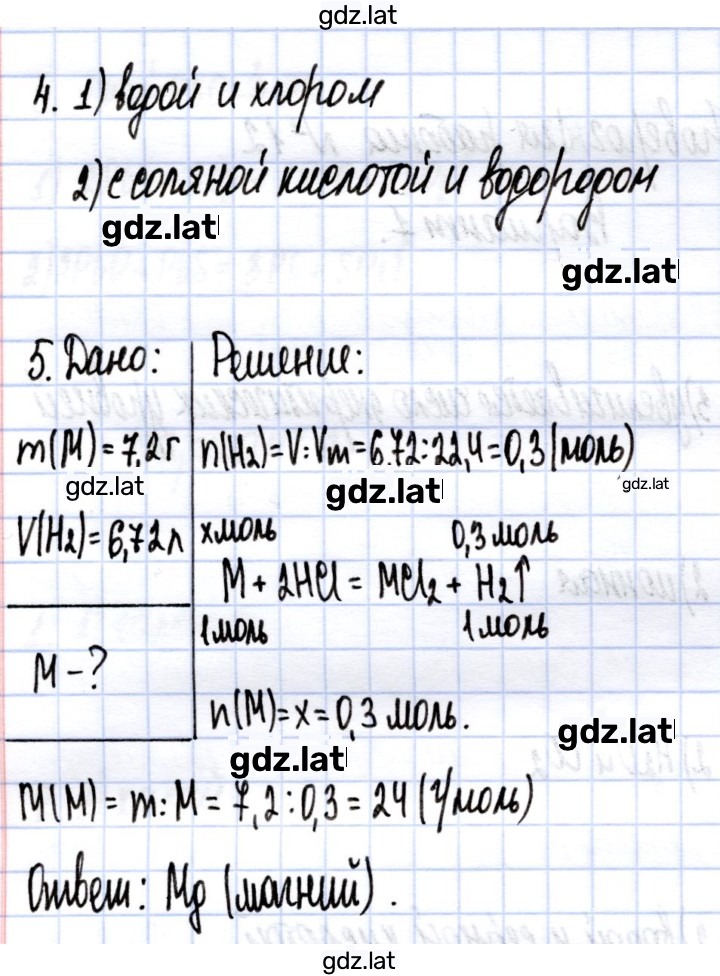 gdz.lat
4. 1) водой и хлором
2) с соляной кислотой и водородом
gdz.lat
gdz.lat
5. Дано:
Решение:
m(M) = 7,2 г
n(H₂) = V : Vm = 6.72 : 22,4 = 0,3 (моль)
gdz.lat
gdz.lat
gdz.lat
V(H₂) = 6,72 л
x моль 0,3 моль
M + 2HCl = MCl₂ + H₂↑
1 моль 1 моль
M - ?
n(M) = x = 0,3 моль.
gdz.lat
gdz.lat
M(M) = m : M = 7,2 : 0,3 = 24 (г/моль)
Ответ: Mg (магний).
gdz.lat